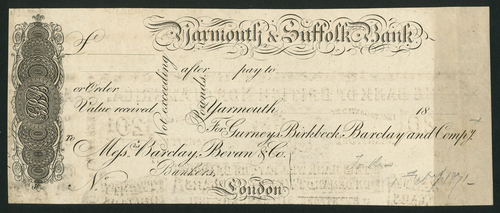 Yarmouth & Suffolk Bank
£
after pay to
Not exceeding
Pounds.
or Order
Value received,
Yarmouth 18
For Gurneys, Birkbeck, Barclay and Compy.
To Messrs. Barclay, Bevan & Co.
Bankers,
N.
London